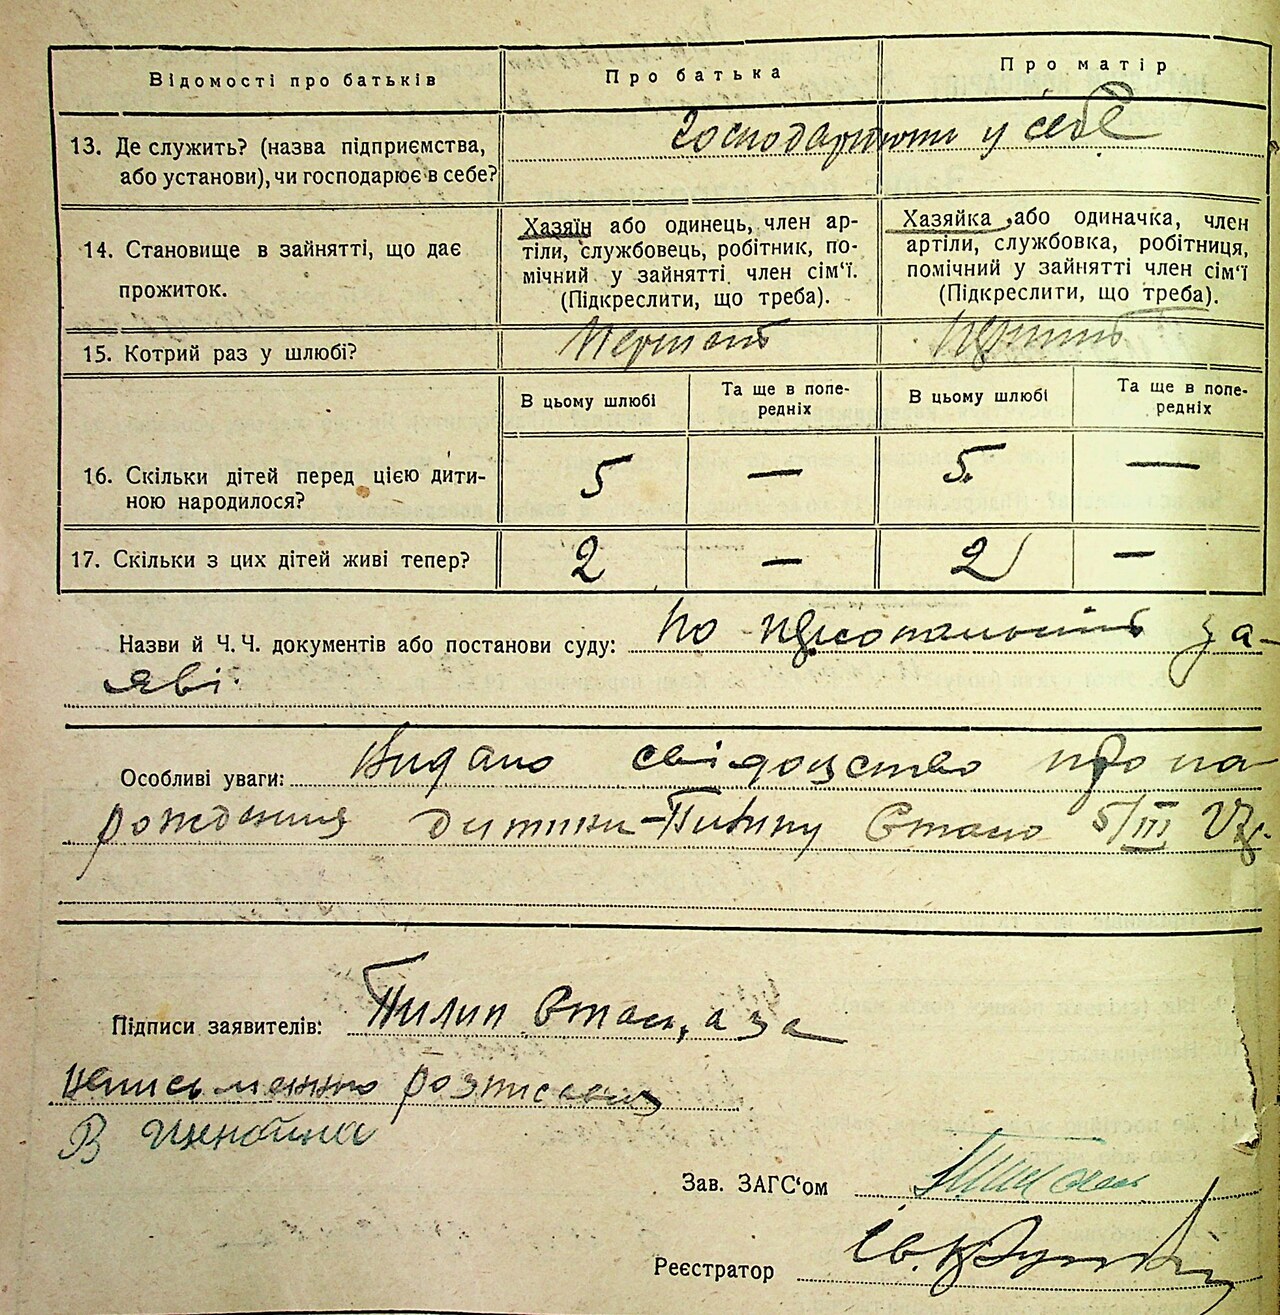 Відомості про батьків
Про батька
Про матір
13. Де служить? (назва підприємства, або установи), чи господарює в себе?
Господарюють у себе
14. Становище в зайнятті, що дає прожиток.
Хазяїн або одинець, член ар-
тіли, службовець, робітник, по-
мічний у зайнятті член сім‘ї.
(Підкреслити, що треба).
Хазяйка або одиначка, член
артіли, службовка, робітниця,
помічний у зайнятті член сім‘ї
(Підкреслити, що треба).
15. Котрий раз у шлюбі?
В цьому шлюбі
Та ще в попе-
редніх
В цьому шлюбі
Та ще в попе-
редніх
16. Скільки дітей перед цією дити-
ною народилося?
5 — 5. —
17. Скільки з цих дітей живі тепер?
2 — 2 —
Назви й Ч. Ч. документів або постанови суду: по за-
яві.
Особливі уваги: Видано свідоцтво про на
рождения дитини Стано 5/III
Підписи заявителів: Пилип Стась, а за
неписьменного розписався
В
Зав. ЗАГС‘ом
Реєстратор